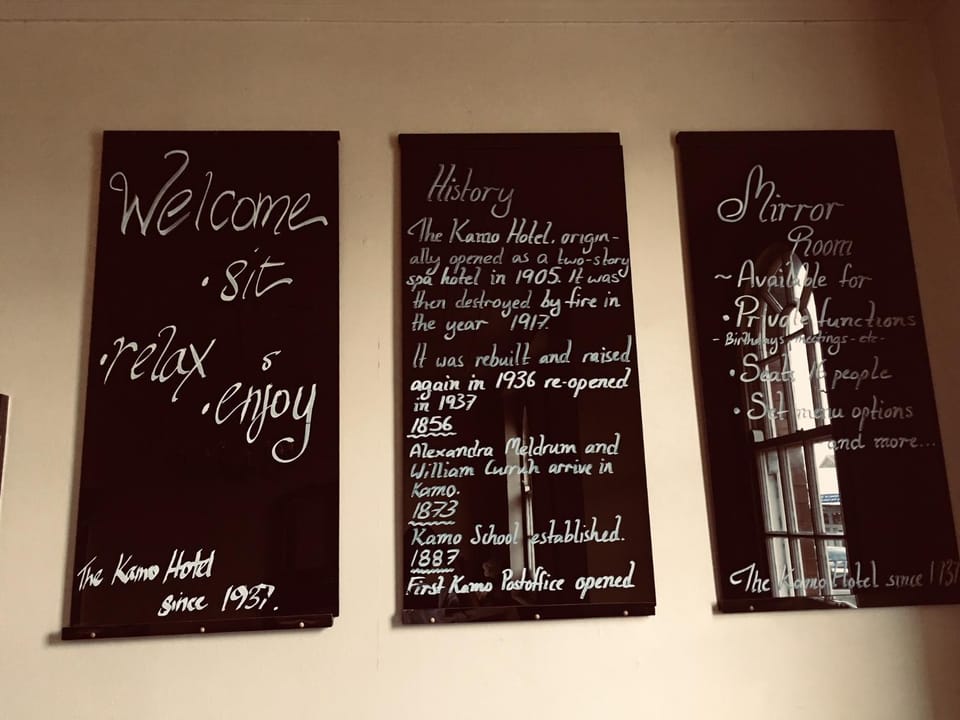 Welcome
• sit
• relax
&
• enjoy
The Kamo Hotel
since 1937.
History
The Kamo Hotel, origin-
ally opened as a two-story
spa hotel in 1905. It was
then destroyed by fire in
the year 1917.
It was rebuilt and raised
again in 1936 re-opened
in 1937
1856
Alexandra Meldrum and
William Curruh arrive in
Kamo.
1873
Kamo School established.
1887
First Kamo Postoffice opened
Mirror
Room
~ Available for
• Private functions
- Birthdays, meetings - etc -
• Seats people
• Set menu options
and more...
The Kamo Hotel since